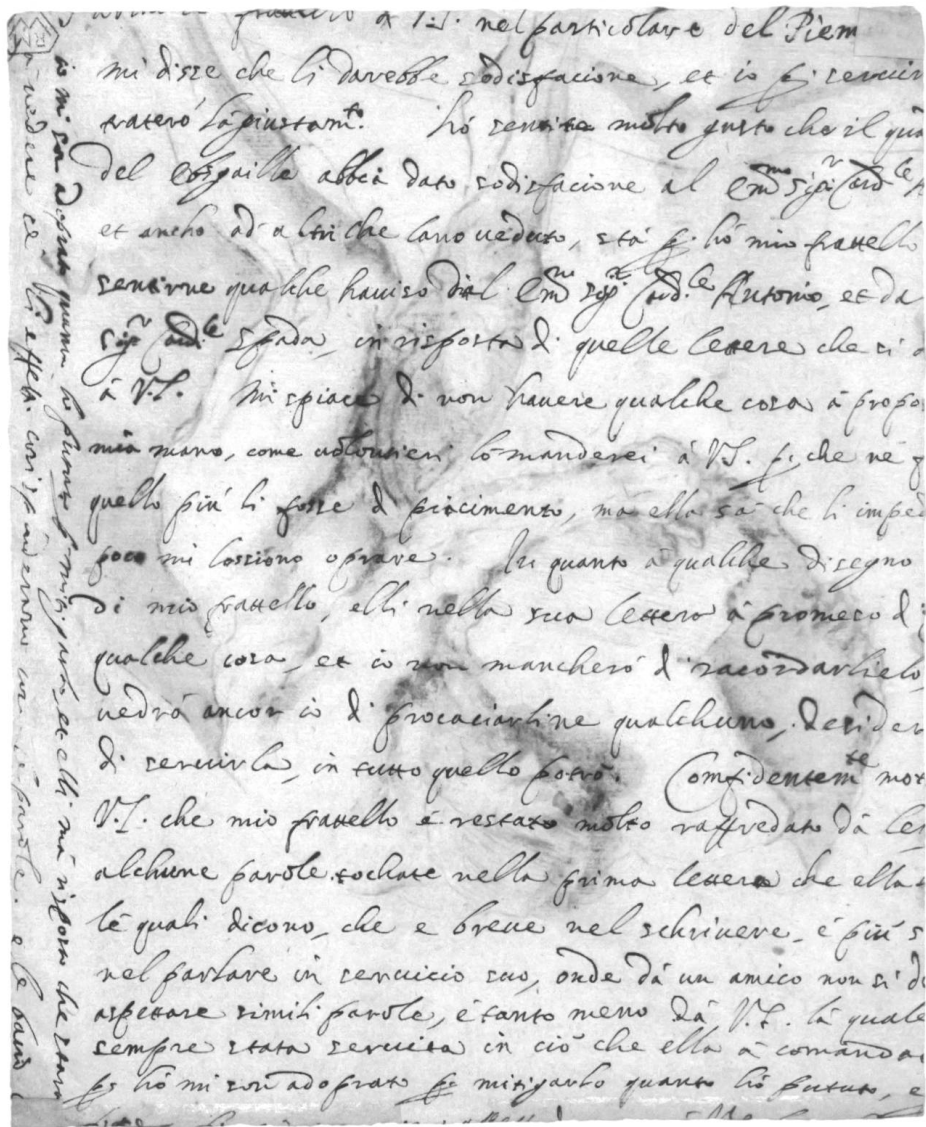 fratello à V.S. nel particolare del Piem
mi disse che li darebbe sodisfacione, et io p servir
traterò là giustam.to hò sentito molto gusto che il qua
del abbia dato sodisfacione al Em.mo sig.r Card.le
et ancho ad altri che lano veduto, stà p. hò mio frattello
sentirne qualche haviso dal Em.o sig.r Card.le Antonio, et da
sig.r Card.le Spada, in risposta di quelle lettere che si
à V.S. Mi spiace di non havere qualche cosa à propo
mia mano, come volontieri lo manderei à V.S. p. che ne
quello più li fosse di piacimento, mà ella sà che li imped
poco mi lossiono oprare. In quanto à qualche disegno
di mio frattello, elli nella sua lettera à promeso di
qualche cosa, et io non mancherò di racordarlielo,
vedrò ancor io di procaciarline qualchuno, desider
di servirla, in tutto quello potrò. Comfidentem.te mot
V.S. che mio frattello è restato molto raffredato dà le
alchune parole tochate nella prima lettera che ella
le quali dicono, che e breve nel schrivere, è più s
nel parlare in servicio suo, onde dà un amico non si de
aspettare simili parole, è tanto meno dà V.S. là quale
sempre stata servita in ciò che ella à comanda
p. hò mi son adoprato p. mitigarlo quanto hò pututo, e
io mi son adoprato quanto ho p mitigarlo, et elli mà risposto che starà
à vedere se li effetti corisponderano con le parole. e le baccio